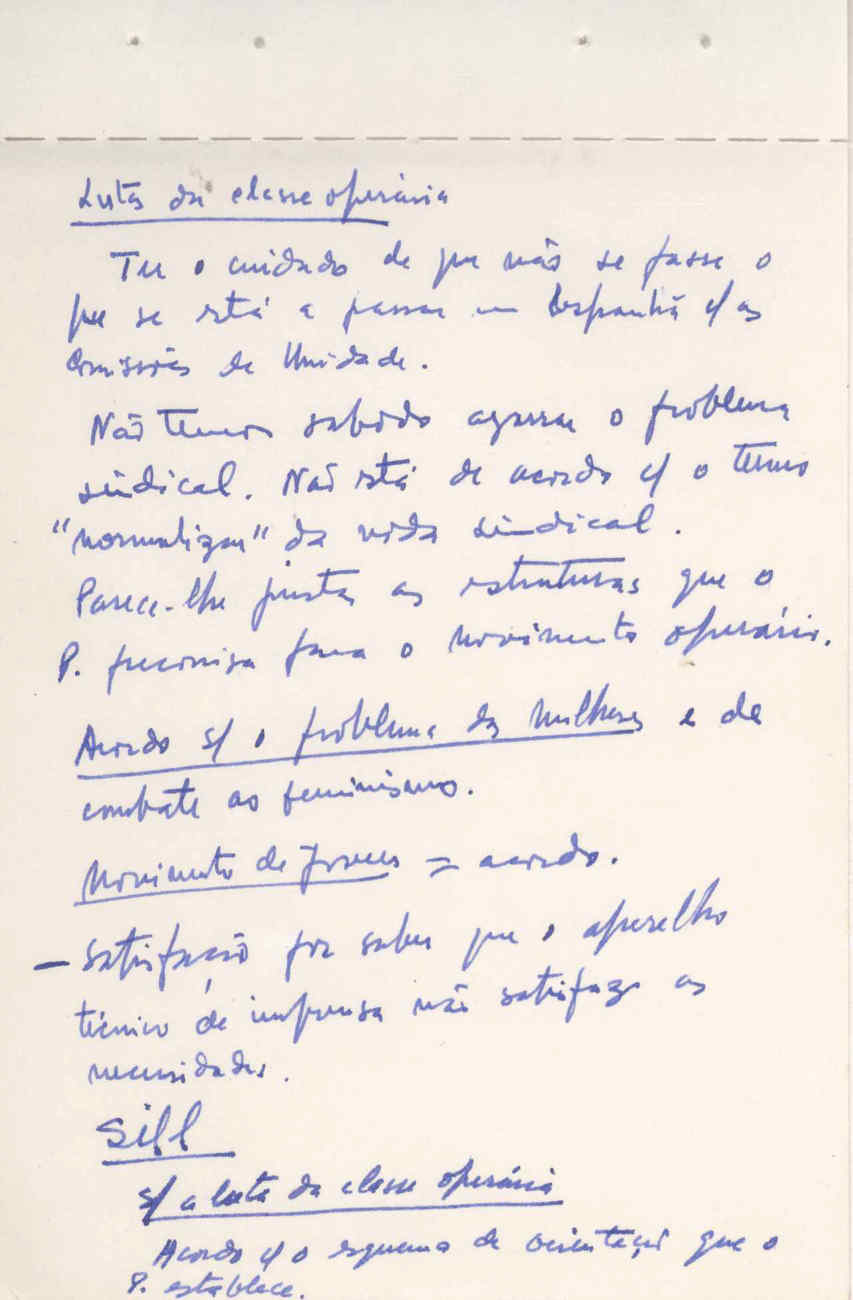 Luta da classe operária
Ter o cuidado de que não se passe o
que se está a passar em Espanha c/ as
Comissões de Unidade.
Não temos sabido agarrar o problema
sindical. Não está de acordo c/ o termo
"normalizar" da vida sindical.
Parece-lhe justas as estruturas que o
P. preconisa para o movimento operário.
Acordo s/ o problema das mulheres e de
combate ao feminismo.
Movimento de Jovens = acordo.
— Satisfação por saber que o aparelho
técnico de imprensa não satisfaz as
necessidades.
Sill
s/ a luta da classe operária
Acordo c/ o esquema de orientação que o
P. establece.